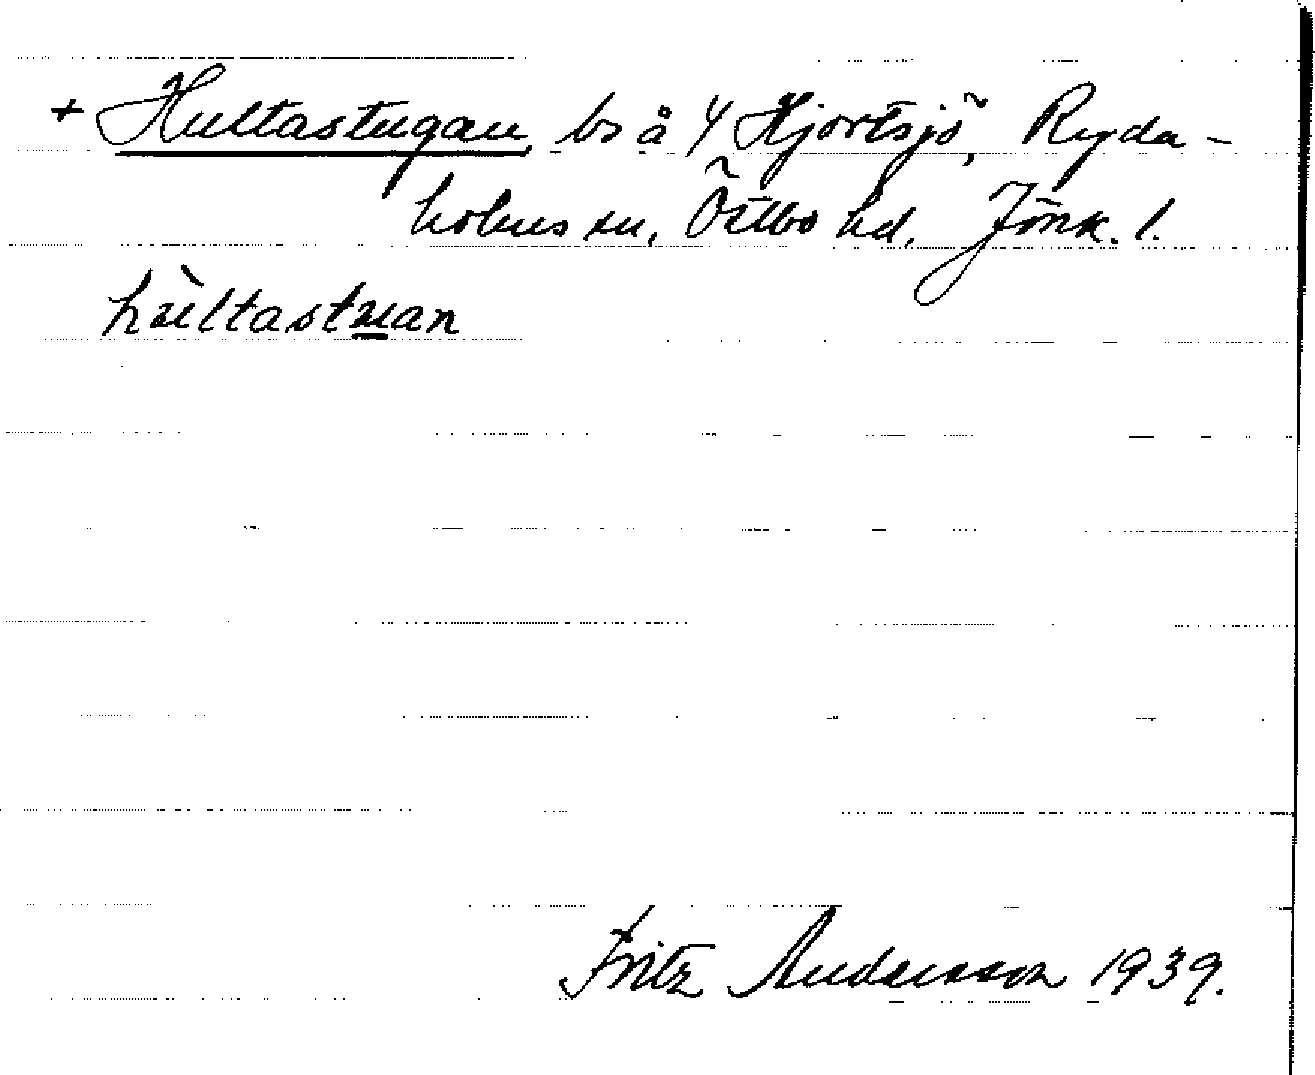 + Hultastugan, bs å 4 Hjortsjö, Ryda-
holms sn, Östbo hd, Jönk. l.
hùltastuan
Fritz Andersson 1939.